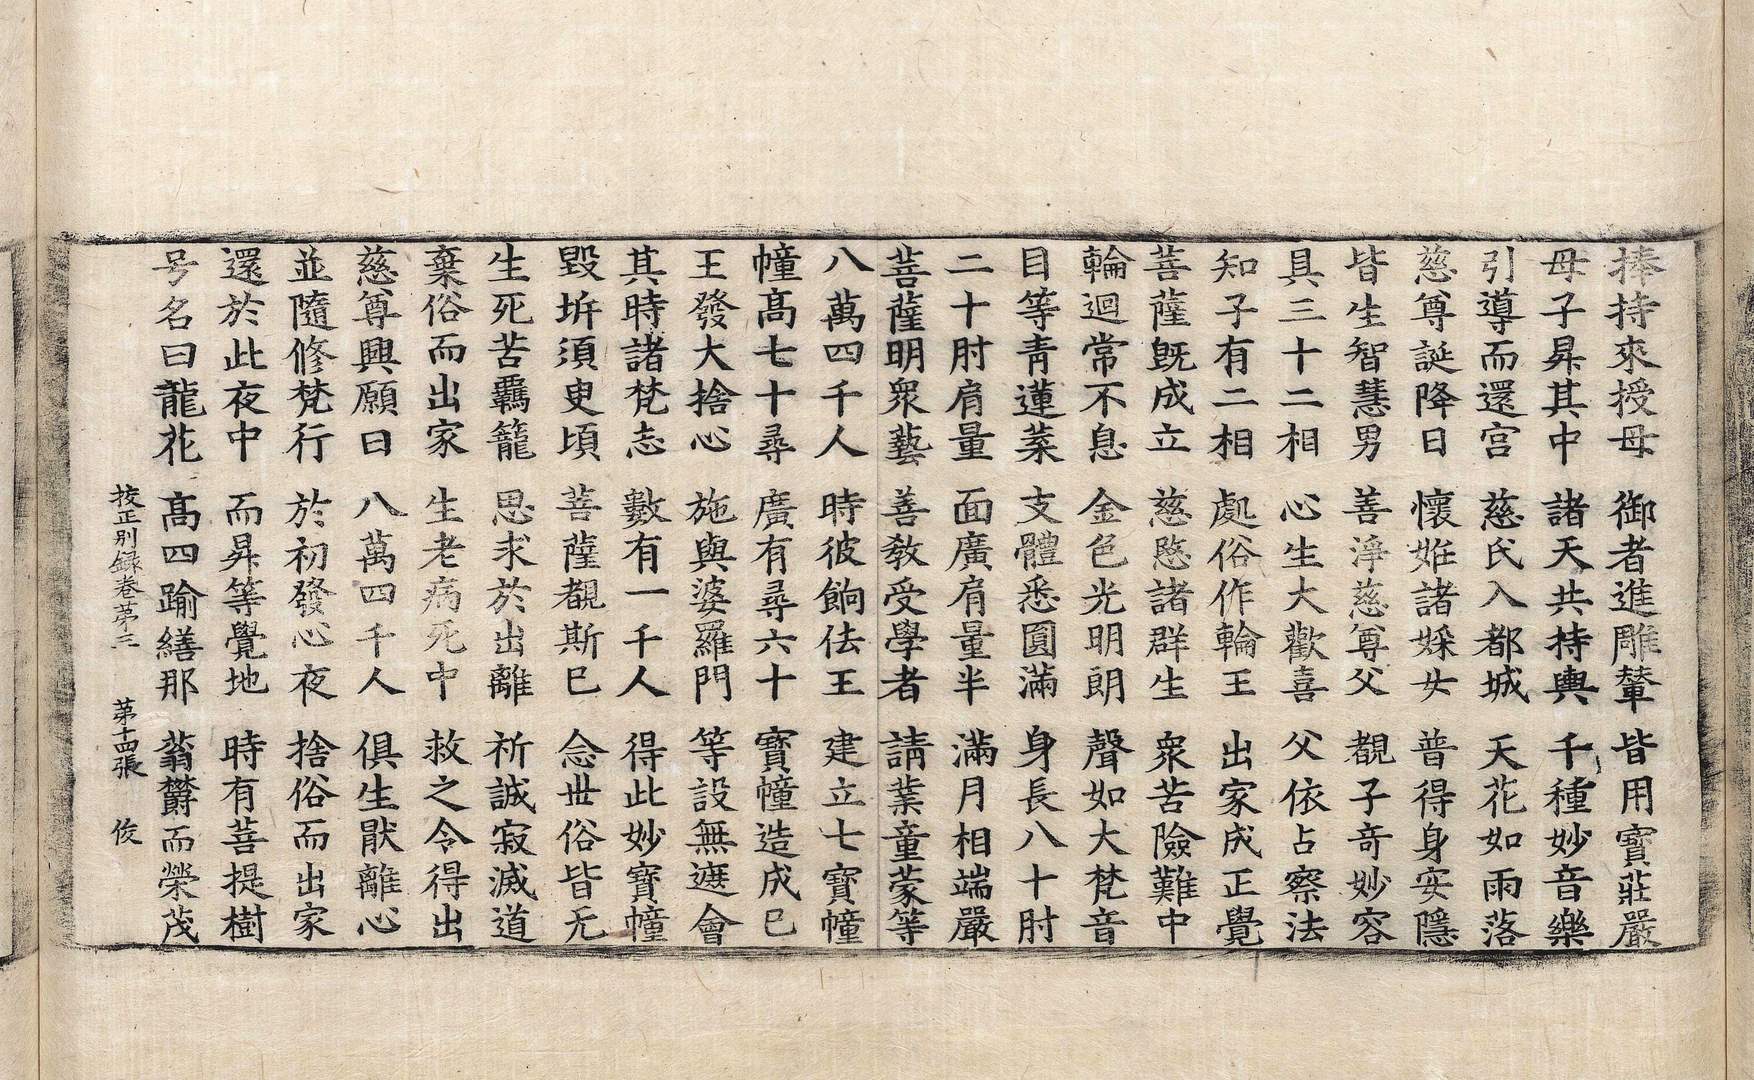 捧持來授母　御者進雕輦　皆用寶莊嚴
母子昇其中　諸天共持輿　千種妙音樂
引導而還宮　慈氏入都城　天花如雨落
慈尊誕降日　懷妊諸婇女　普得身安隱
皆生智慧男　善淨慈尊父　覩子奇妙容
具三十二相　心生大歡喜　父依占察法
知子有二相　處俗作輪王　出家成正覺
菩薩旣成立　慈愍諸群生　衆苦險難中
輪迴常不息　金色光明朗　聲如大梵音
目等靑蓮葉　支體悉圓滿　身長八十肘
二十肘肩量　面廣肩量半　滿月相端嚴
菩薩明衆藝　善敎受學者　請業童蒙等
八萬四千人　時彼餉佉王　建立七寶幢
幢髙七十尋　廣有尋六十　寶幢造成已
王發大捨心　施與婆羅門　等設無遮會
其時諸梵志　數有一千人　得此妙寶幢
毀坼須臾頃　菩薩覩斯已　念世俗皆无
生死苦羈籠　思求於出離　祈誠寂滅道
棄俗而出家　生老病死中　救之令得出
慈尊興願日　八萬四千人　俱生猒離心
並隨修梵行　於初發心夜　捨俗而出家
還於此夜中　而昇等覺地　時有菩提樹
号名曰龍花　髙四踰繕那　蓊欝而榮茂
挍正別録卷苐三　苐十四張　俊